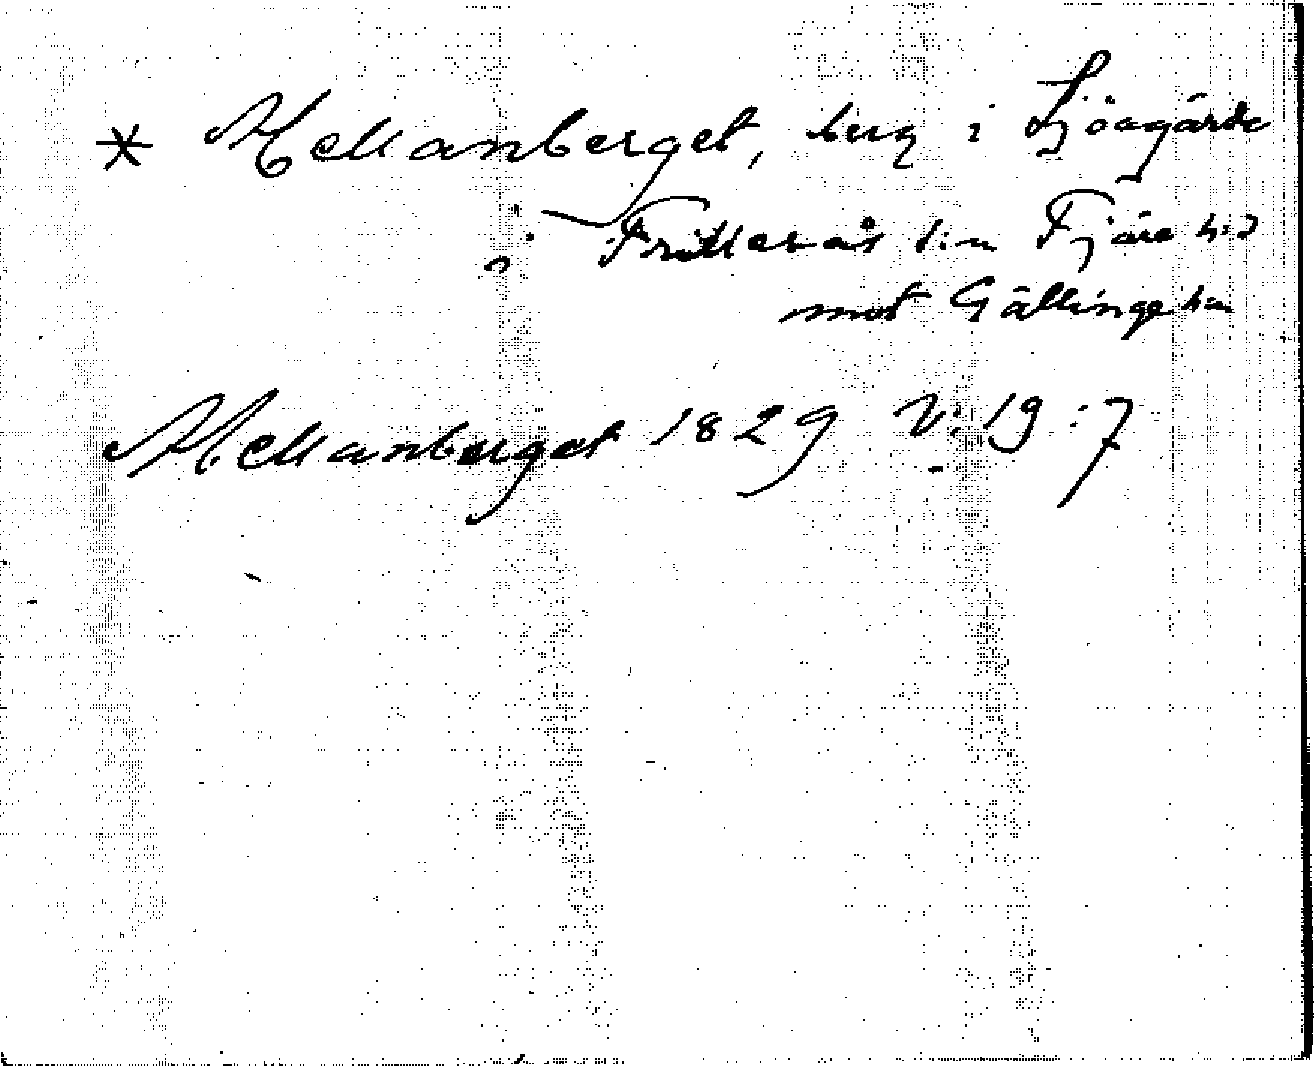 * Mellanberget, berg i Sjöagärde
i Frillesås s:n Fjäre h:d
mot Gällinge s:n
Mellanberget 1829 V:19:7